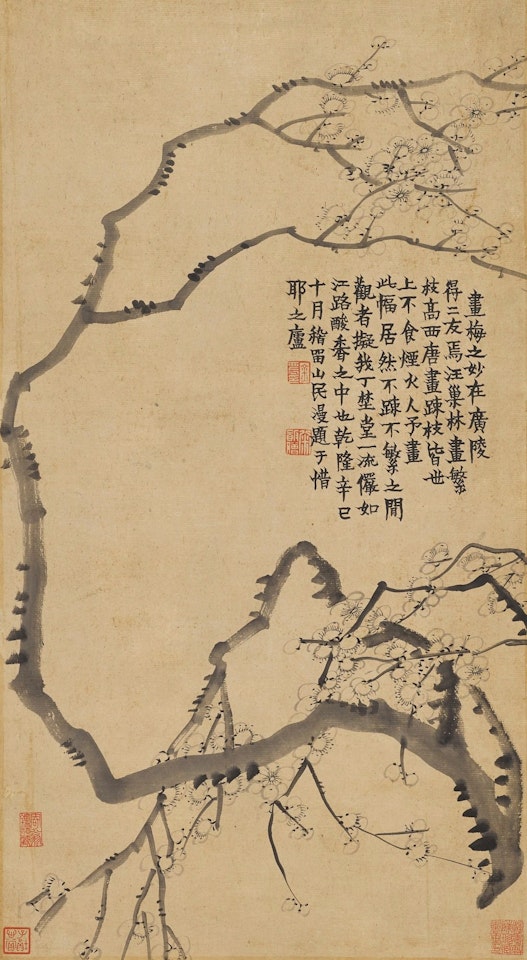 畫梅之妙在廣陵
得二友焉汪巢林畫繁
枝高西唐畫疎枝皆世
上不食煙火人予畫
此幅居然不疎不繁之間
觀者擬我丁埜堂一流儼如
江路酸香之中也乾隆辛巳
十月稽留山民漫題于惜
耶之廬